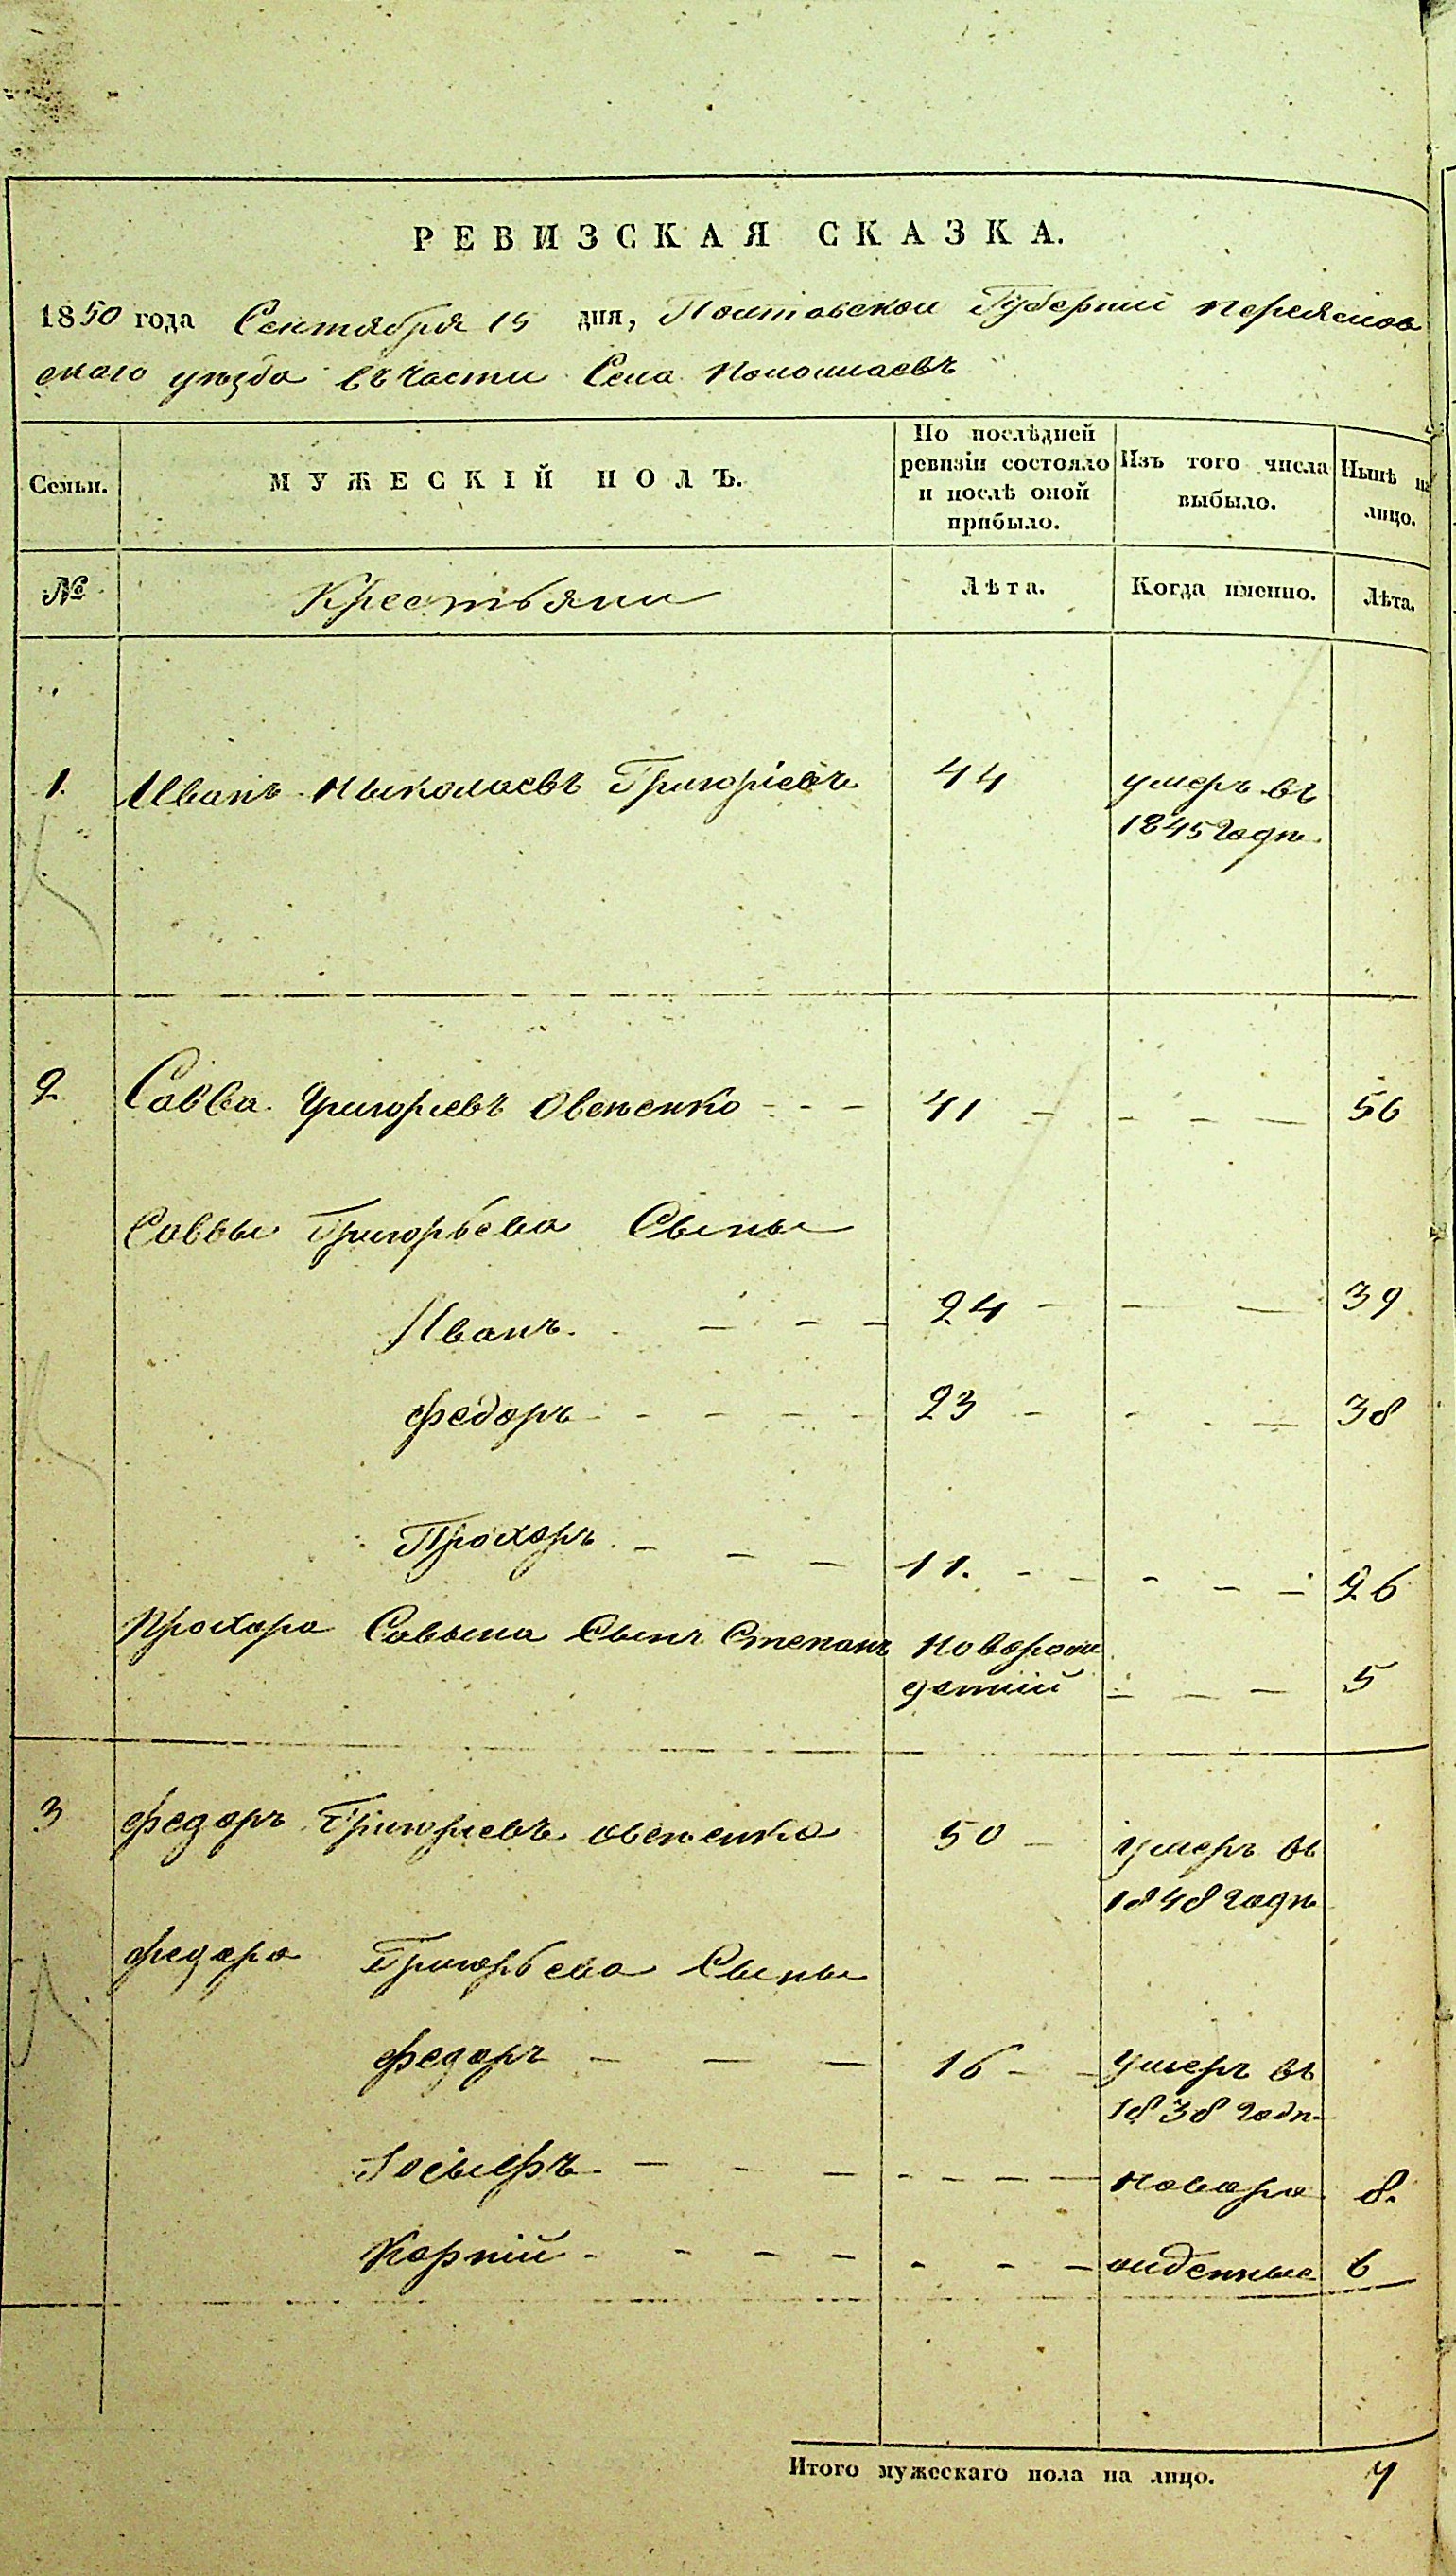 РЕВИЗСКАЯ СКАЗКА.
1850 года Сентября 15 дня, Полтавской Губерніи Переяслов
скаго уѣзда въ части Села
Семьи.
МУЖЕСКІЙ ПОЛЪ.
По послѣдней
ревизіи состояло
и послѣ оной
прибыло.
Изъ того числа
выбыло.
Нынѣ на
лицо.
№
Крестьяни
Лѣта.
Когда именно.
Лѣта.
1. Иванъ Николаевъ Григоріевъ 44 умеръ въ
1845 годѣ.
2 Савва Григоріевъ Овененко - - - 41 - - - — 56
Саввы Григорьева Сыны
Иванъ. — - - 24 - — — 39
Федоръ - - - - - 23 - - - — 38
Прохоръ. - - - 11. - - - - - 26
Прохора Савына Сынъ Степанъ Новорож
денній - - - 5
3 Федоръ Григоріевъ Овененко 50 - умеръ въ
1848 годѣ
Федора Григорьева Сыны
Федоръ - — — 16 - - умеръ въ
1838 годѣ
Іосыфъ. — - — - - - — новоро 8.
Корній - - - - - - - ожденные 6
Итого мужескаго пола на лицо. 7